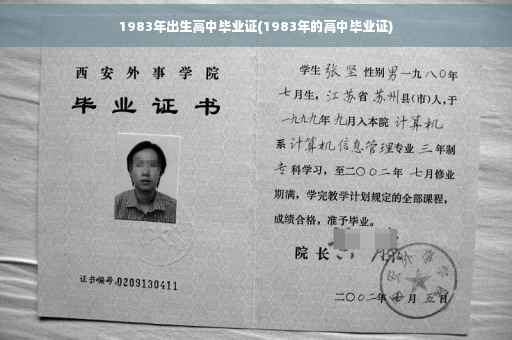 1983年出生高中毕业证(1983年的高中毕业证)
西安外事学院
毕业证书
证书编号:0209130411
学生 张坚 性别 男 一九八〇年
七月生，江苏省 苏州县(市)人，于
一九九九年 九月入本院 计算机
系 计算机信息管理专业 三 年制
专 科学习，至二〇〇二年 七月修业
期满，学完教学计划规定的全部课程，
成绩合格，准予毕业。
院长
二〇〇二年 月 五日